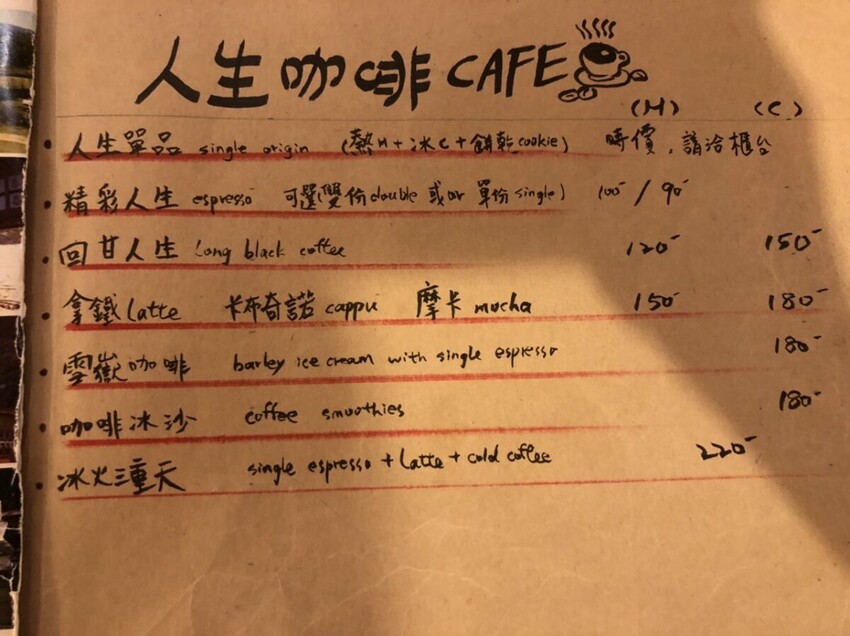 人生咖啡 CAFE
(H) (C)
人生單品 single origin (熱H+冰C+餅乾cookie) 時價,請洽櫃台
精彩人生 espresso 可選(雙份double 或or 單份single) 100- / 90-
回甘人生 Long black coffee 120- 150-
拿鐵latte 卡布奇諾 cappu 摩卡 mocha 150- 180-
雪嶽咖啡 barley ice cream with single espresso 180-
咖啡冰沙 coffee smoothies 180-
冰火三重天 single espresso + Latte + cold coffee 220-